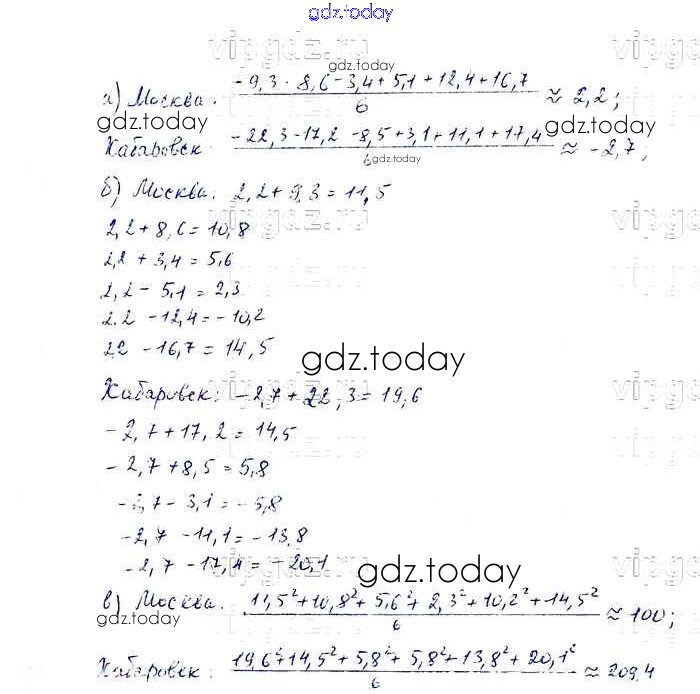 gdz.today
vipgdz.ru
gdz.today
а) Москва. (-9,3 - 8,6 - 3,4 + 5,1 + 12,4 + 16,7)/6 ≈ 2,2;
gdz.today
gdz.today
Хабаровск (-22,3 - 17,2 - 8,5 + 3,1 + 11,1 + 17,4)/6 ≈ -2,7;
gdz.today
б) Москва. 2,2 + 9,3 = 11,5
2,2 + 8,6 = 10,8
2,2 + 3,4 = 5,6
2,2 - 5,1 = 2,3
2.2 - 12,4 = -10,2
2,2 - 16,7 = 14,5
gdz.today
Хабаровск: -2,7 + 22,3 = 19,6
-2,7 + 17,2 = 14,5
-2,7 + 8,5 = 5,8
-2,7 - 3,1 = -5,8
-2,7 - 11,1 = -13,8
-2,7 - 17,4 = -20,1
gdz.today
в) Москва. (11,5² + 10,8² + 5,6² + 2,3² + 10,2² + 14,5²)/6 ≈ 100;
Хабаровск: (19,6² + 14,5² + 5,8² + 5,8² + 13,8² + 20,1²)/6 ≈ 209,4